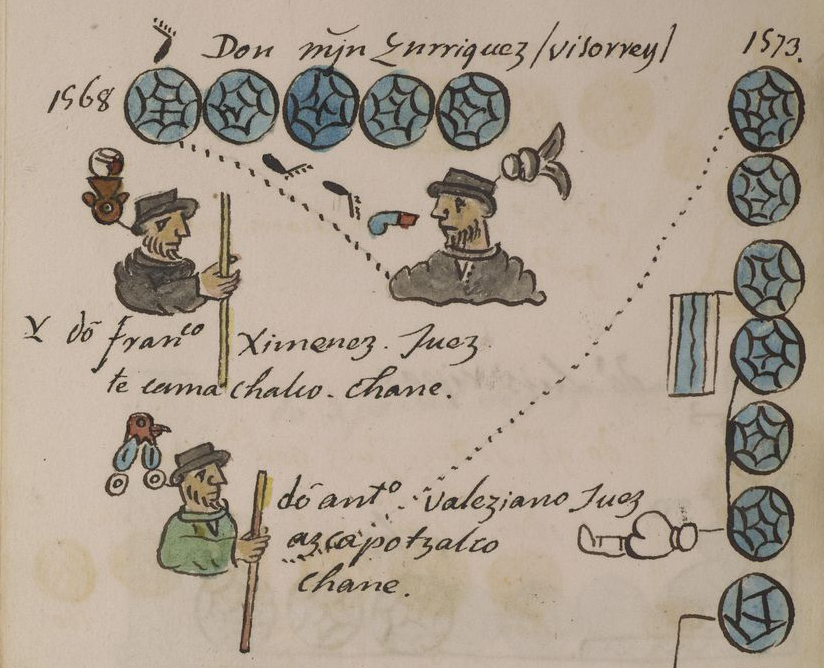 Don mjn Enrriquez / visorrey /
1573.
1568
Y dō franco Ximenez. Juez
te cama chalco. chane.
dō anto. Valeziano Juez
azcapotzalco
chane.